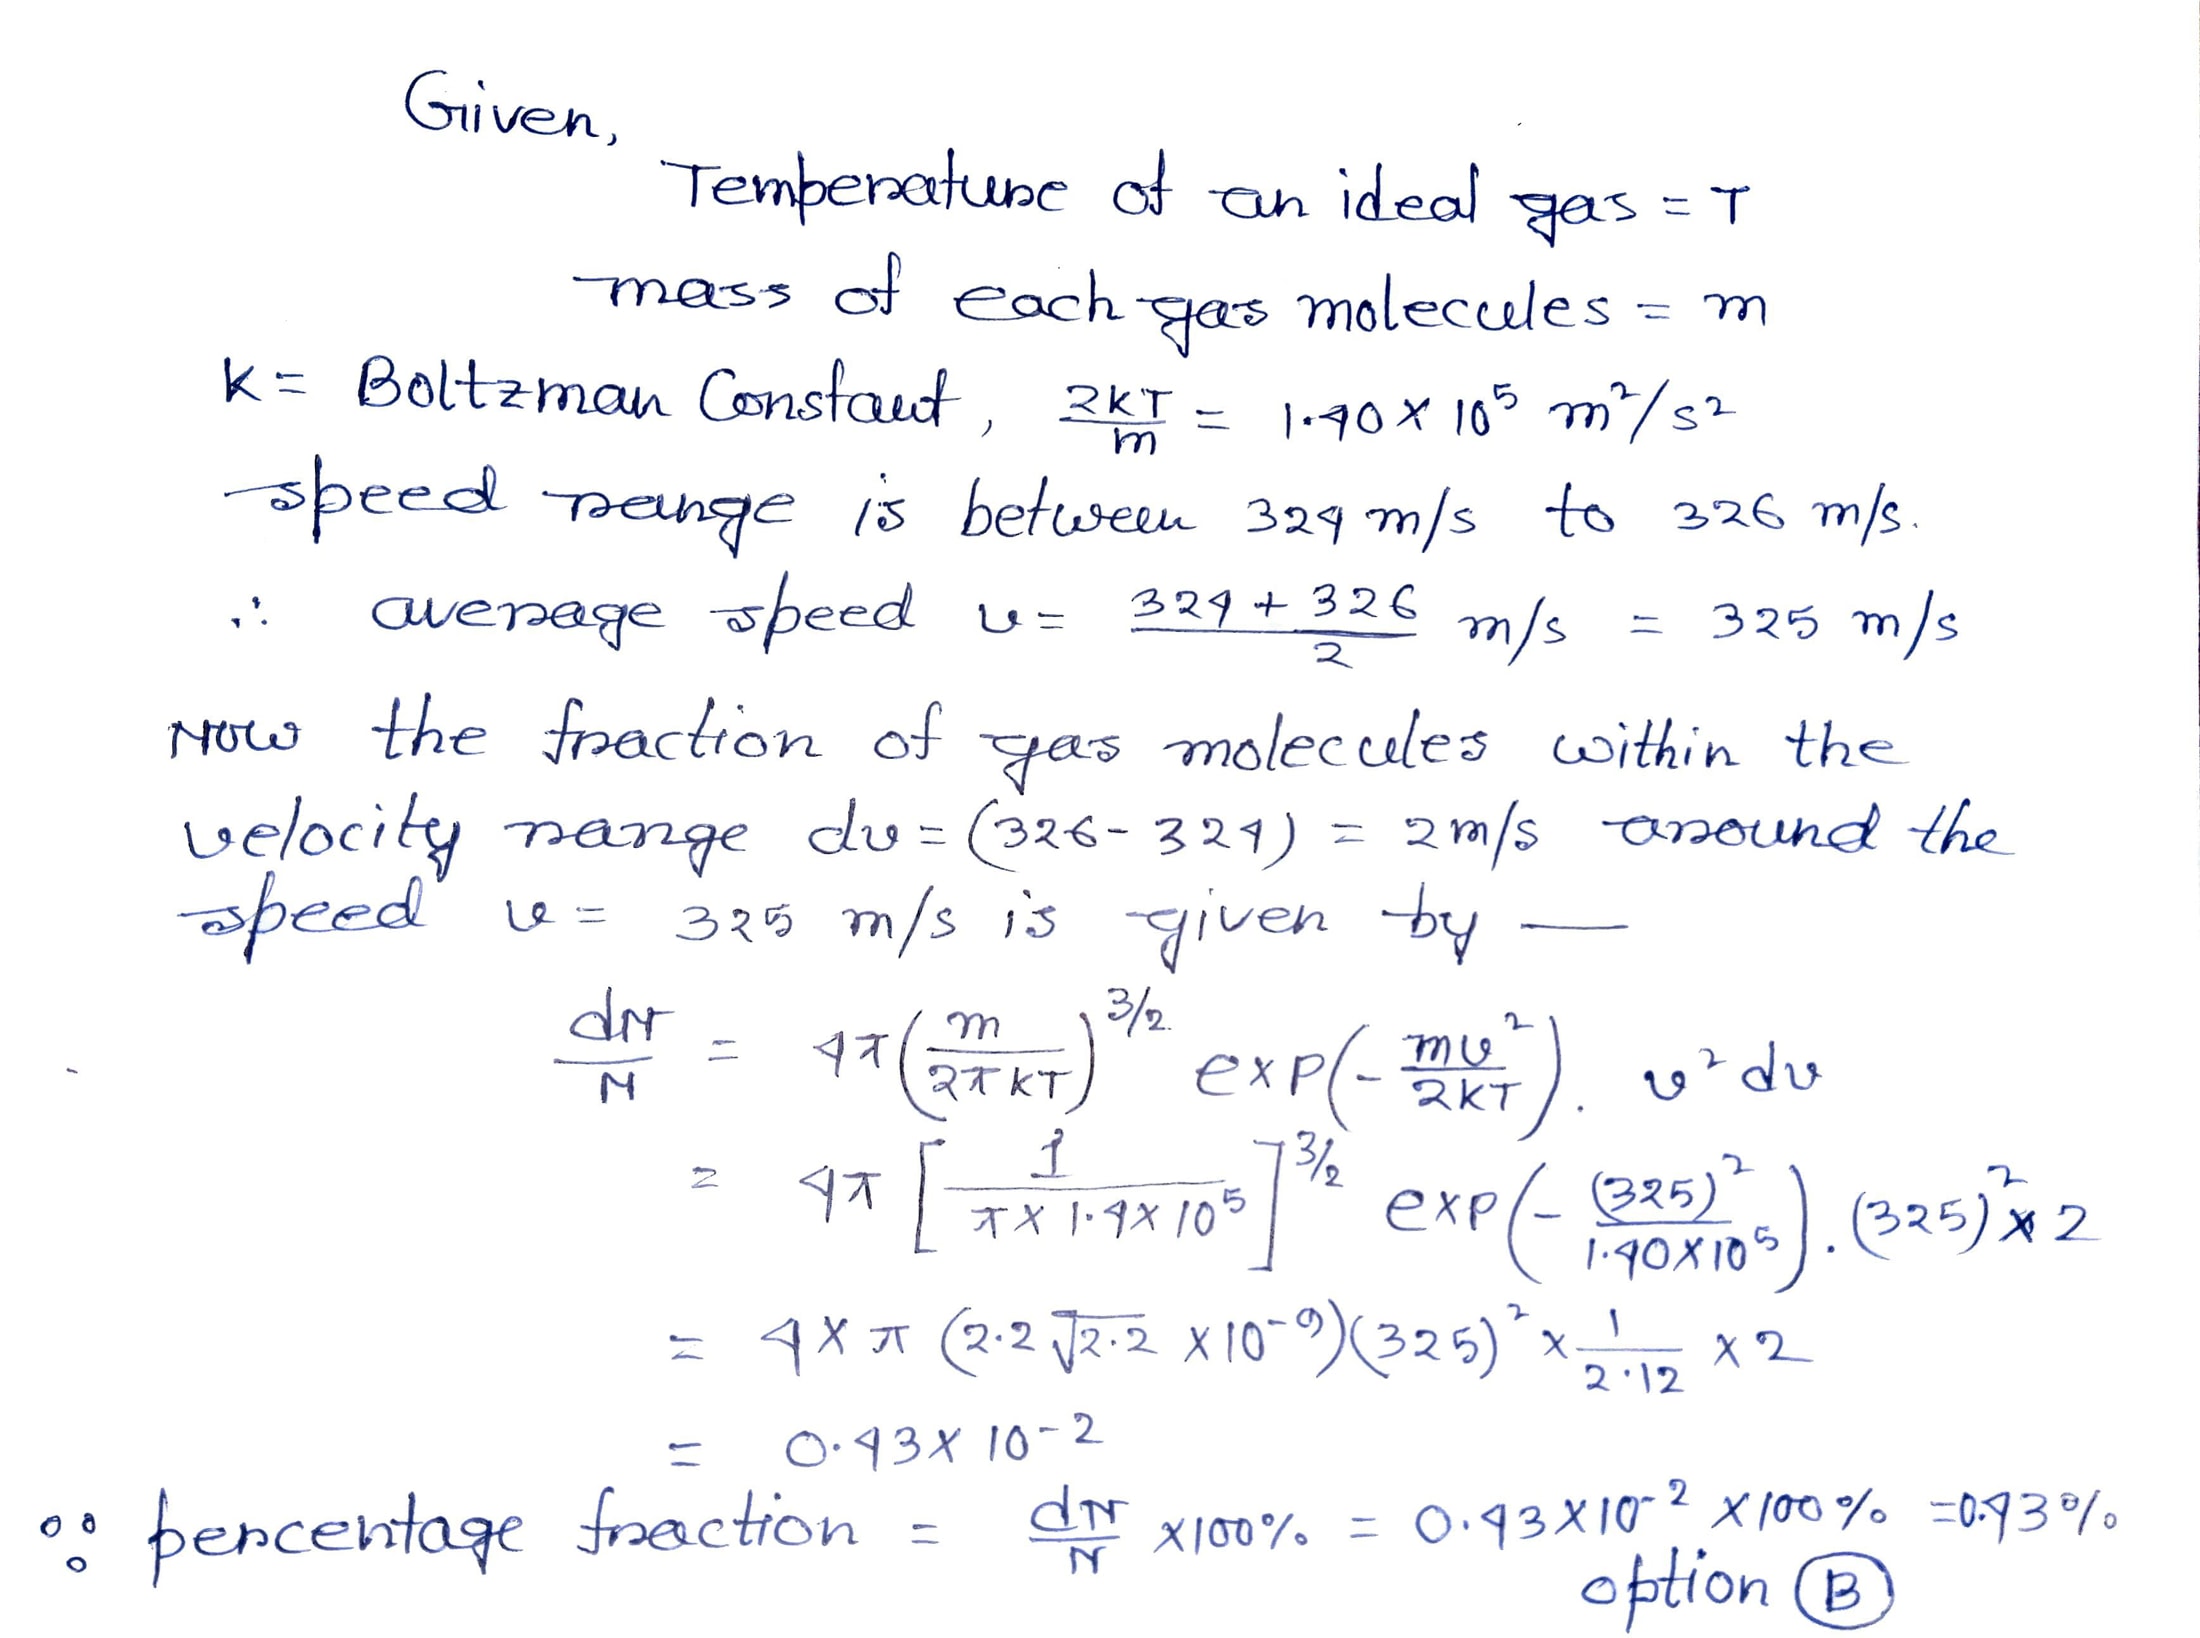 Given,
Temperature of an ideal gas = T
mass of each gas molecules = m
K = Boltzman Constant, 2KT/m = 1.40 × 10⁵ m²/s²
speed range is between 324 m/s to 326 m/s.
∴ average speed v = (324 + 326)/2 m/s = 325 m/s
Now the fraction of gas molecules within the
velocity range dv = (326 - 324) = 2 m/s around the
speed v = 325 m/s is given by —
dN/N = 4π(m/2πKT)^3/2 exp(- mv²/2KT). v² dv
= 4π [1/π × 1.4 × 10⁵]^3/2 exp(- (325)²/1.40×10⁵).(325)² × 2
= 4 × π (2.2 √2.2 × 10⁻⁹)(325)² × 1/2.12 × 2
= 0.43 × 10⁻²
∴ percentage fraction = dN/N × 100% = 0.43 × 10⁻² × 100% = 0.43%
option Ⓑ